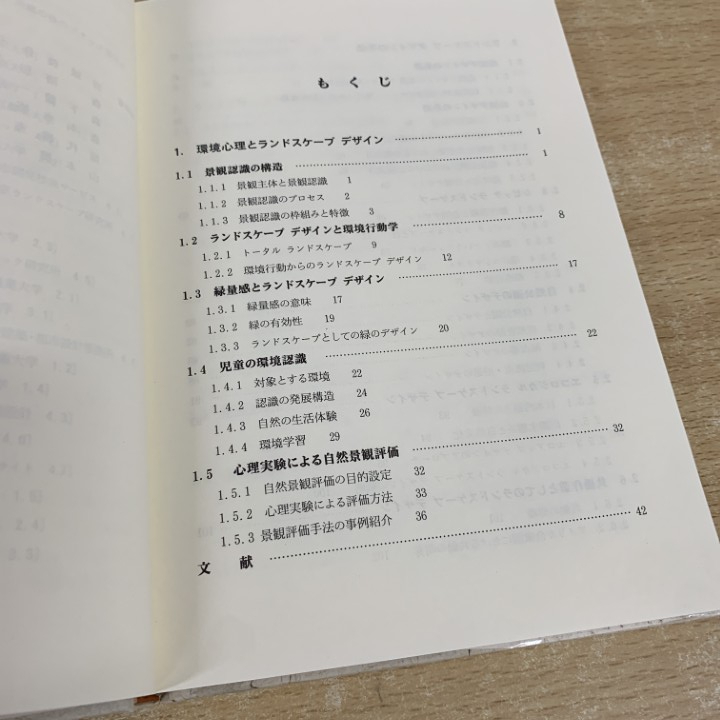 もくじ
1. 環境心理とランドスケープ デザイン 1
1.1 景観認識の構造 1
1.1.1 景観主体と景観認識 1
1.1.2 景観認識のプロセス 2
1.1.3 景観認識の枠組みと特徴 3
1.2 ランドスケープ デザインと環境行動学 8
1.2.1 トータル ランドスケープ 9
1.2.2 環境行動からのランドスケープ デザイン 12
1.3 緑量感とランドスケープ デザイン 17
1.3.1 緑量感の意味 17
1.3.2 緑の有効性 19
1.3.3 ランドスケープとしての緑のデザイン 20
1.4 児童の環境認識 22
1.4.1 対象とする環境 22
1.4.2 認識の発展構造 24
1.4.3 自然の生活体験 26
1.4.4 環境学習 29
1.5 心理実験による自然景観評価 32
1.5.1 自然景観評価の目的設定 32
1.5.2 心理実験による評価方法 33
1.5.3 景観評価手法の事例紹介 36
文献 42